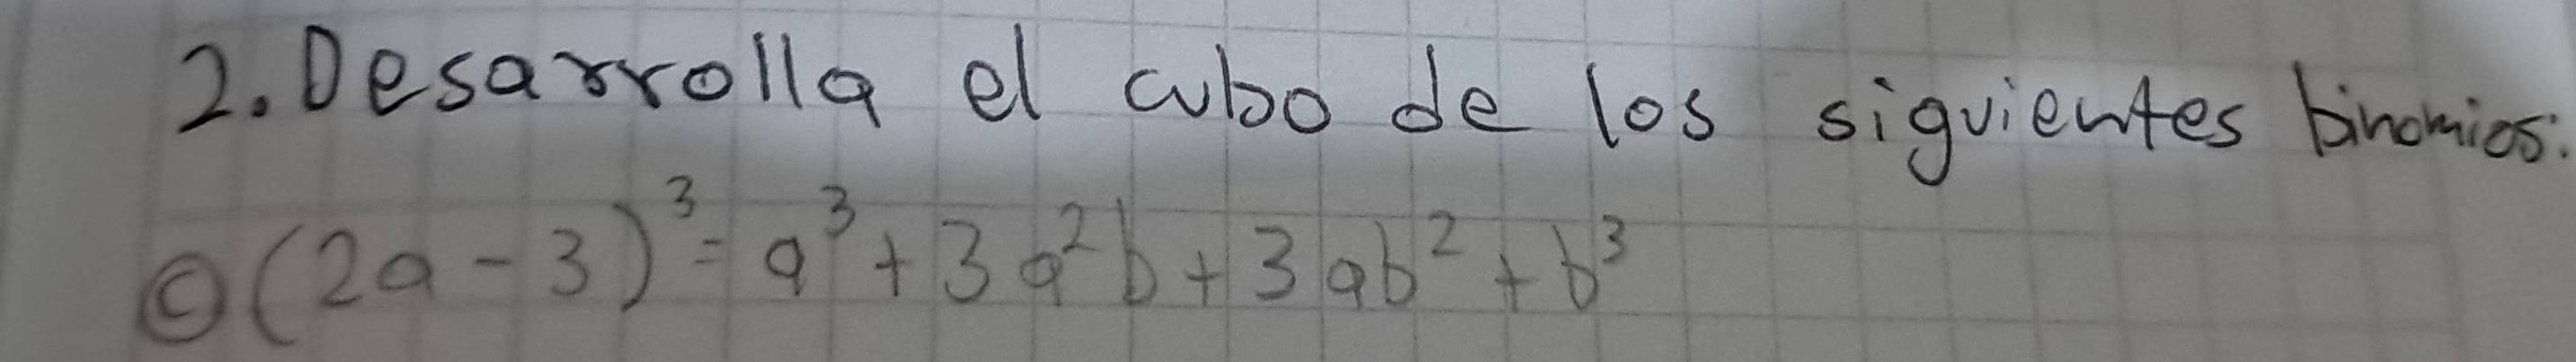 2. Desarrolla el cubo de los siguientes binomios:
ⓒ (2a - 3)³ = a³ + 3a²b + 3ab² + b³